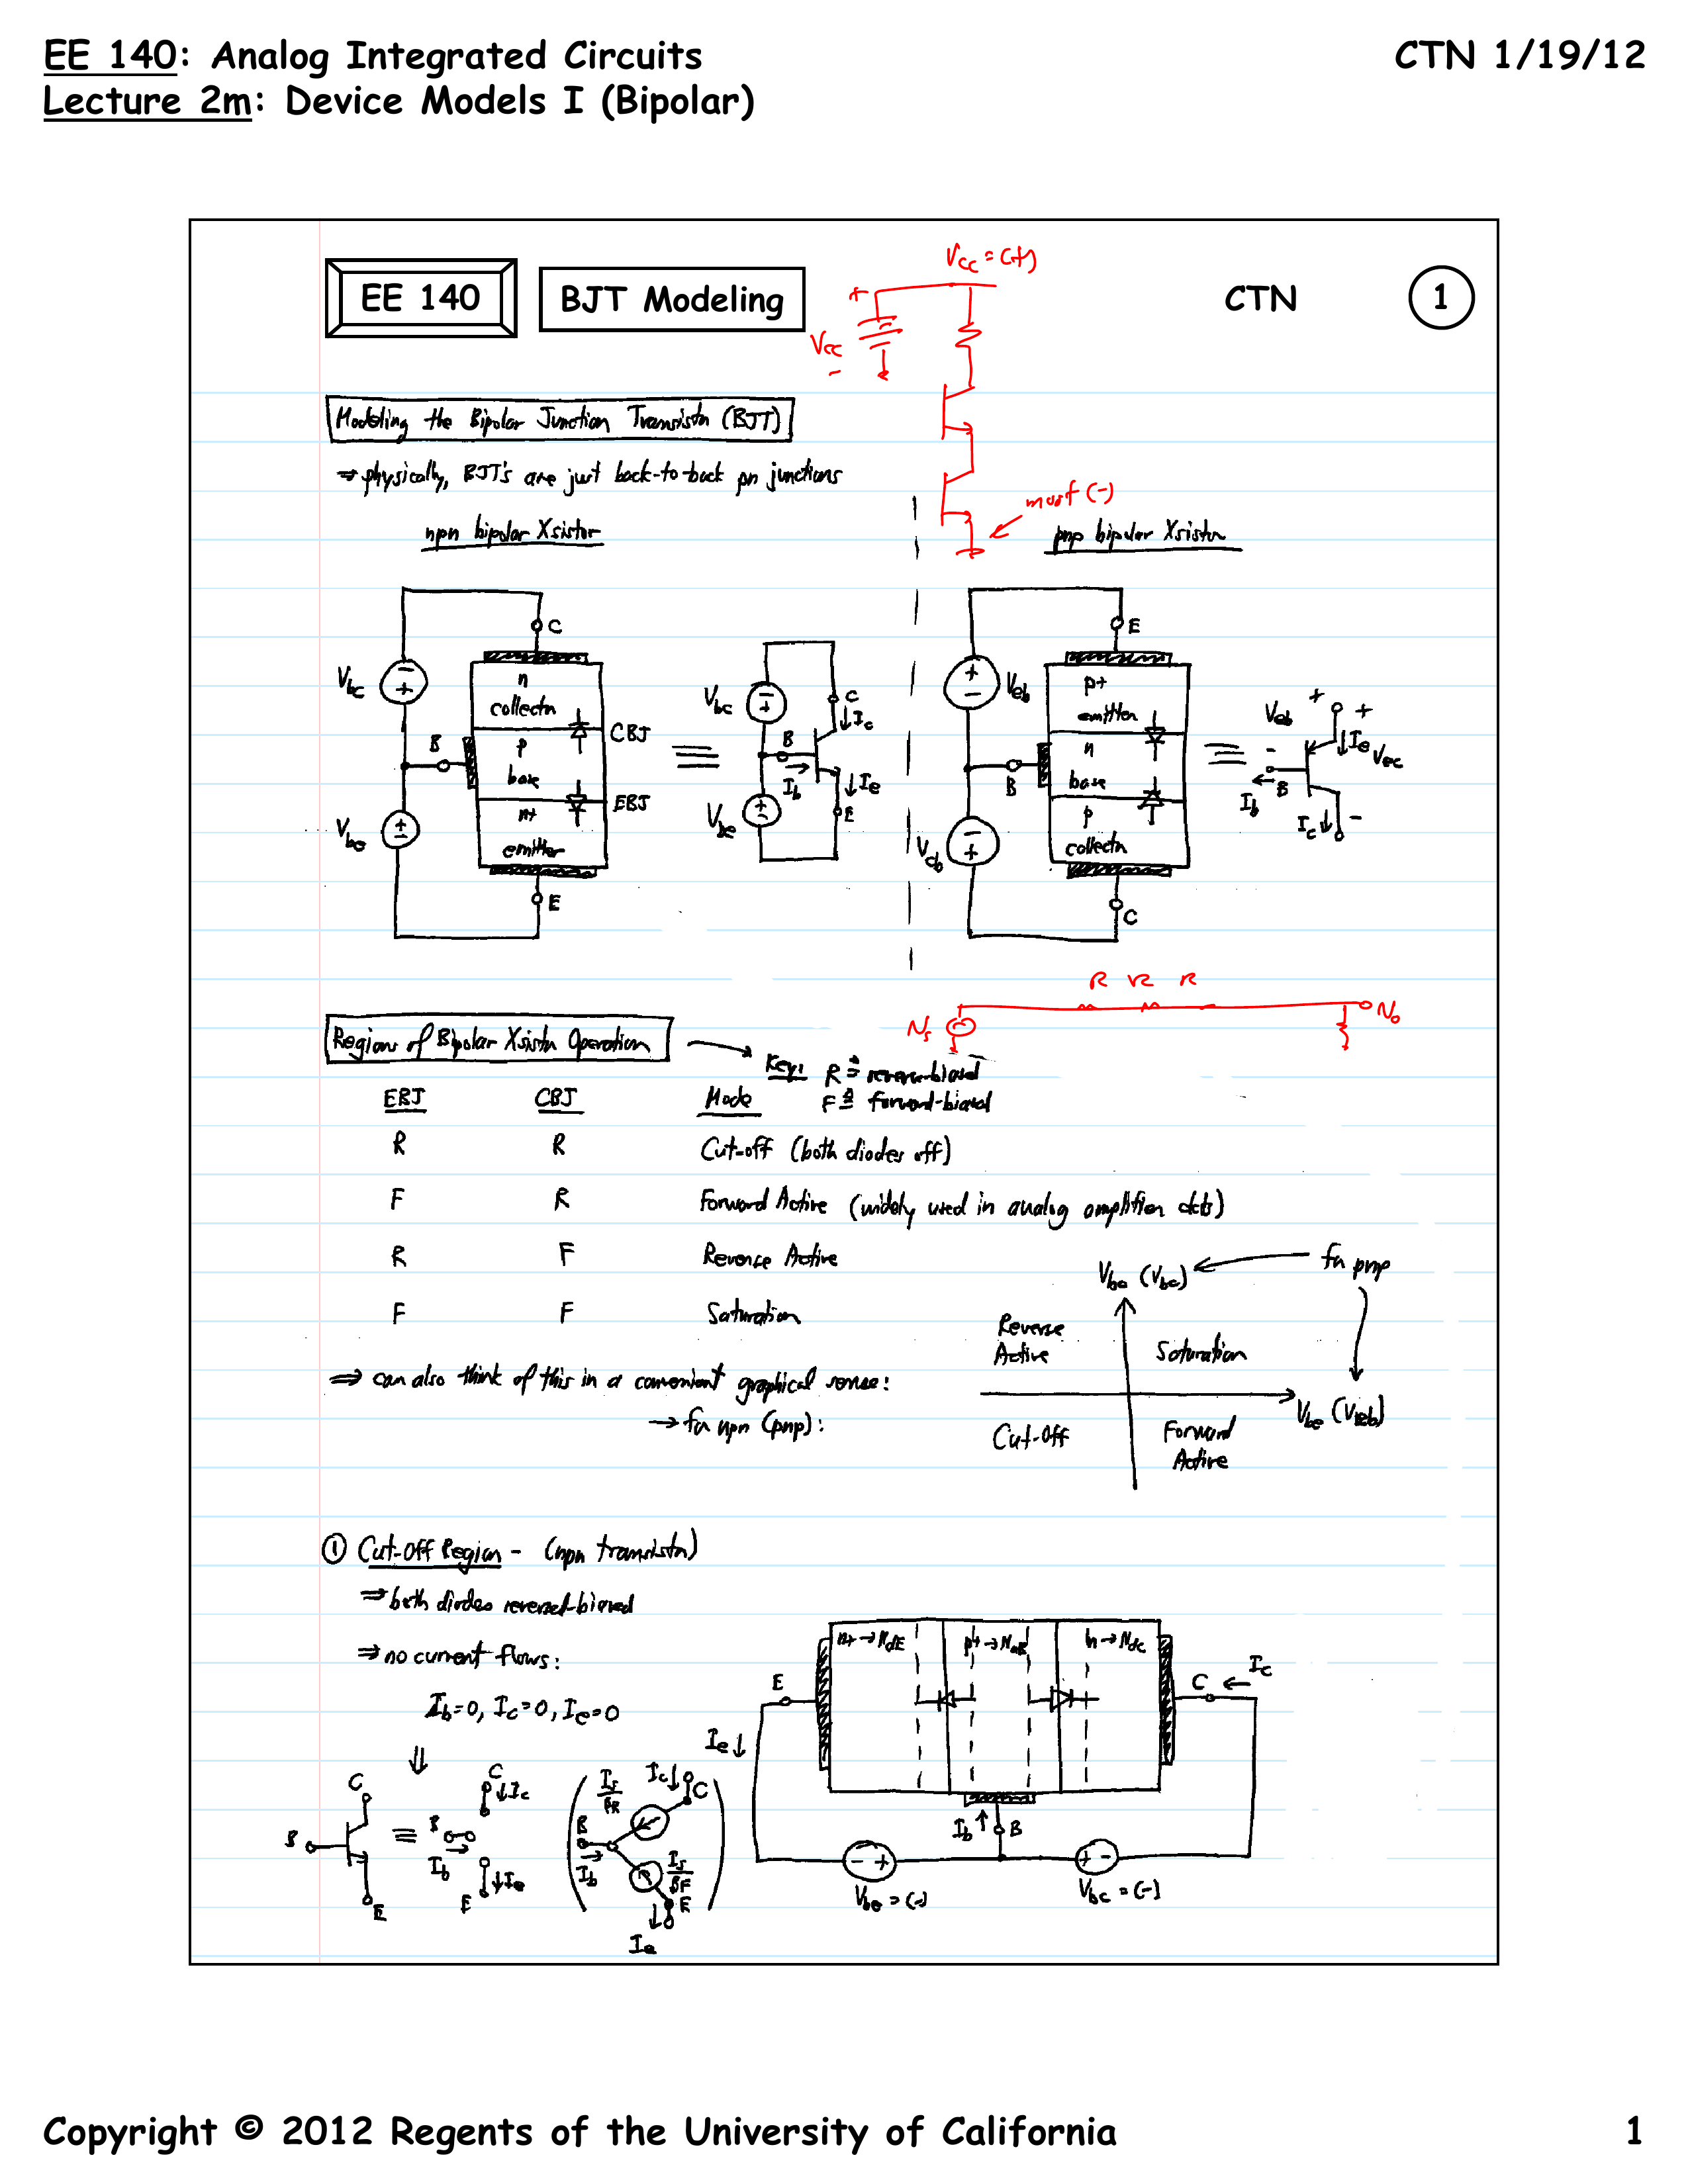 EE 140: Analog Integrated Circuits CTN 1/19/12
Lecture 2m: Device Models I (Bipolar)
EE 140 BJT Modeling CTN 1
Vcc = (+)
+
Vcc
-
Modeling the Bipolar Junction Transistor (BJT)
⇒ physically, BJT's are just back-to-back pn junctions
most (-)
npn bipolar Xsistor
pnp bipolar Xsistor
C
Vbc - +
n
collector
CBJ
B
p
base
EBJ
n+
emitter
Vbe + -
E
≡
Vbc - +
C
↓Ic
B
Ib
↓Ie
Vbe + -
E
E
+ - Veb
p+
emitter
n
base
B
p
collector
Vcb - +
C
≡
Veb + +
↓Ie Vec
- B
Ib
Ic↓ -
R R R
Ns No
Regions of Bipolar Xsistor Operation
Key: R ≜ reverse-biased
F ≜ forward-biased
EBJ CBJ Mode
R R Cut-off (both diodes off)
F R Forward Active (widely used in analog amplifier ckts)
R F Reverse Active
F F Saturation
⇒ can also think of this in a convenient graphical sense:
→ for npn (pnp):
for pnp
Reverse
Active
Saturation
Vbe (Veb)
Cut-Off
Forward
Active
① Cut-Off Region - (npn transistor)
⇒ both diodes reversed-biased
⇒ no current flows:
Ib=0, Ic=0, Ie=0
⇓
C
B
E
≡
C
↓Ic
B
Ib
↓Ie
E
Is/βR
Ic↓ C
B
Ib
Is/βF
E
Ie
n+→NdE p+→NaB n→Ndc
E
Ie↓
C ←Ic
Ib↑ B
- + + -
Vbe = (-) Vbc = (-)
Copyright © 2012 Regents of the University of California 1